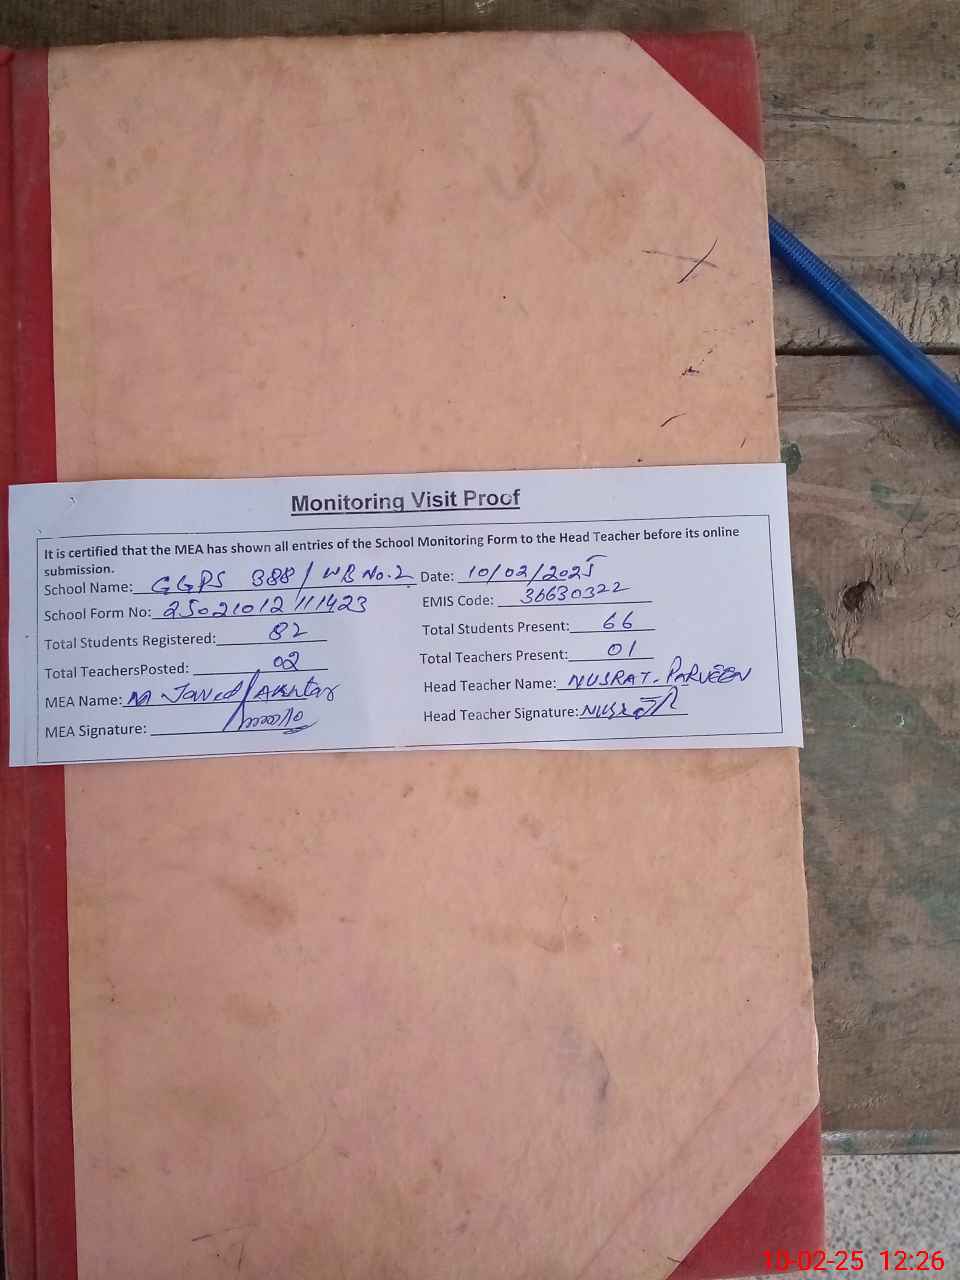 Monitoring Visit Proof
It is certified that the MEA has shown all entries of the School Monitoring Form to the Head Teacher before its online
submission.
School Name: GGPS 388/WB No.2 Date: 10/02/2025
School Form No: 25021012111423 EMIS Code: 36630322
Total Students Registered: 82 Total Students Present: 66
Total TeachersPosted: 02 Total Teachers Present: 01
MEA Name: M Javed Akhtar Head Teacher Name: NUSRAT. PARVEEN
MEA Signature: Head Teacher Signature:
10-02-25 12:26